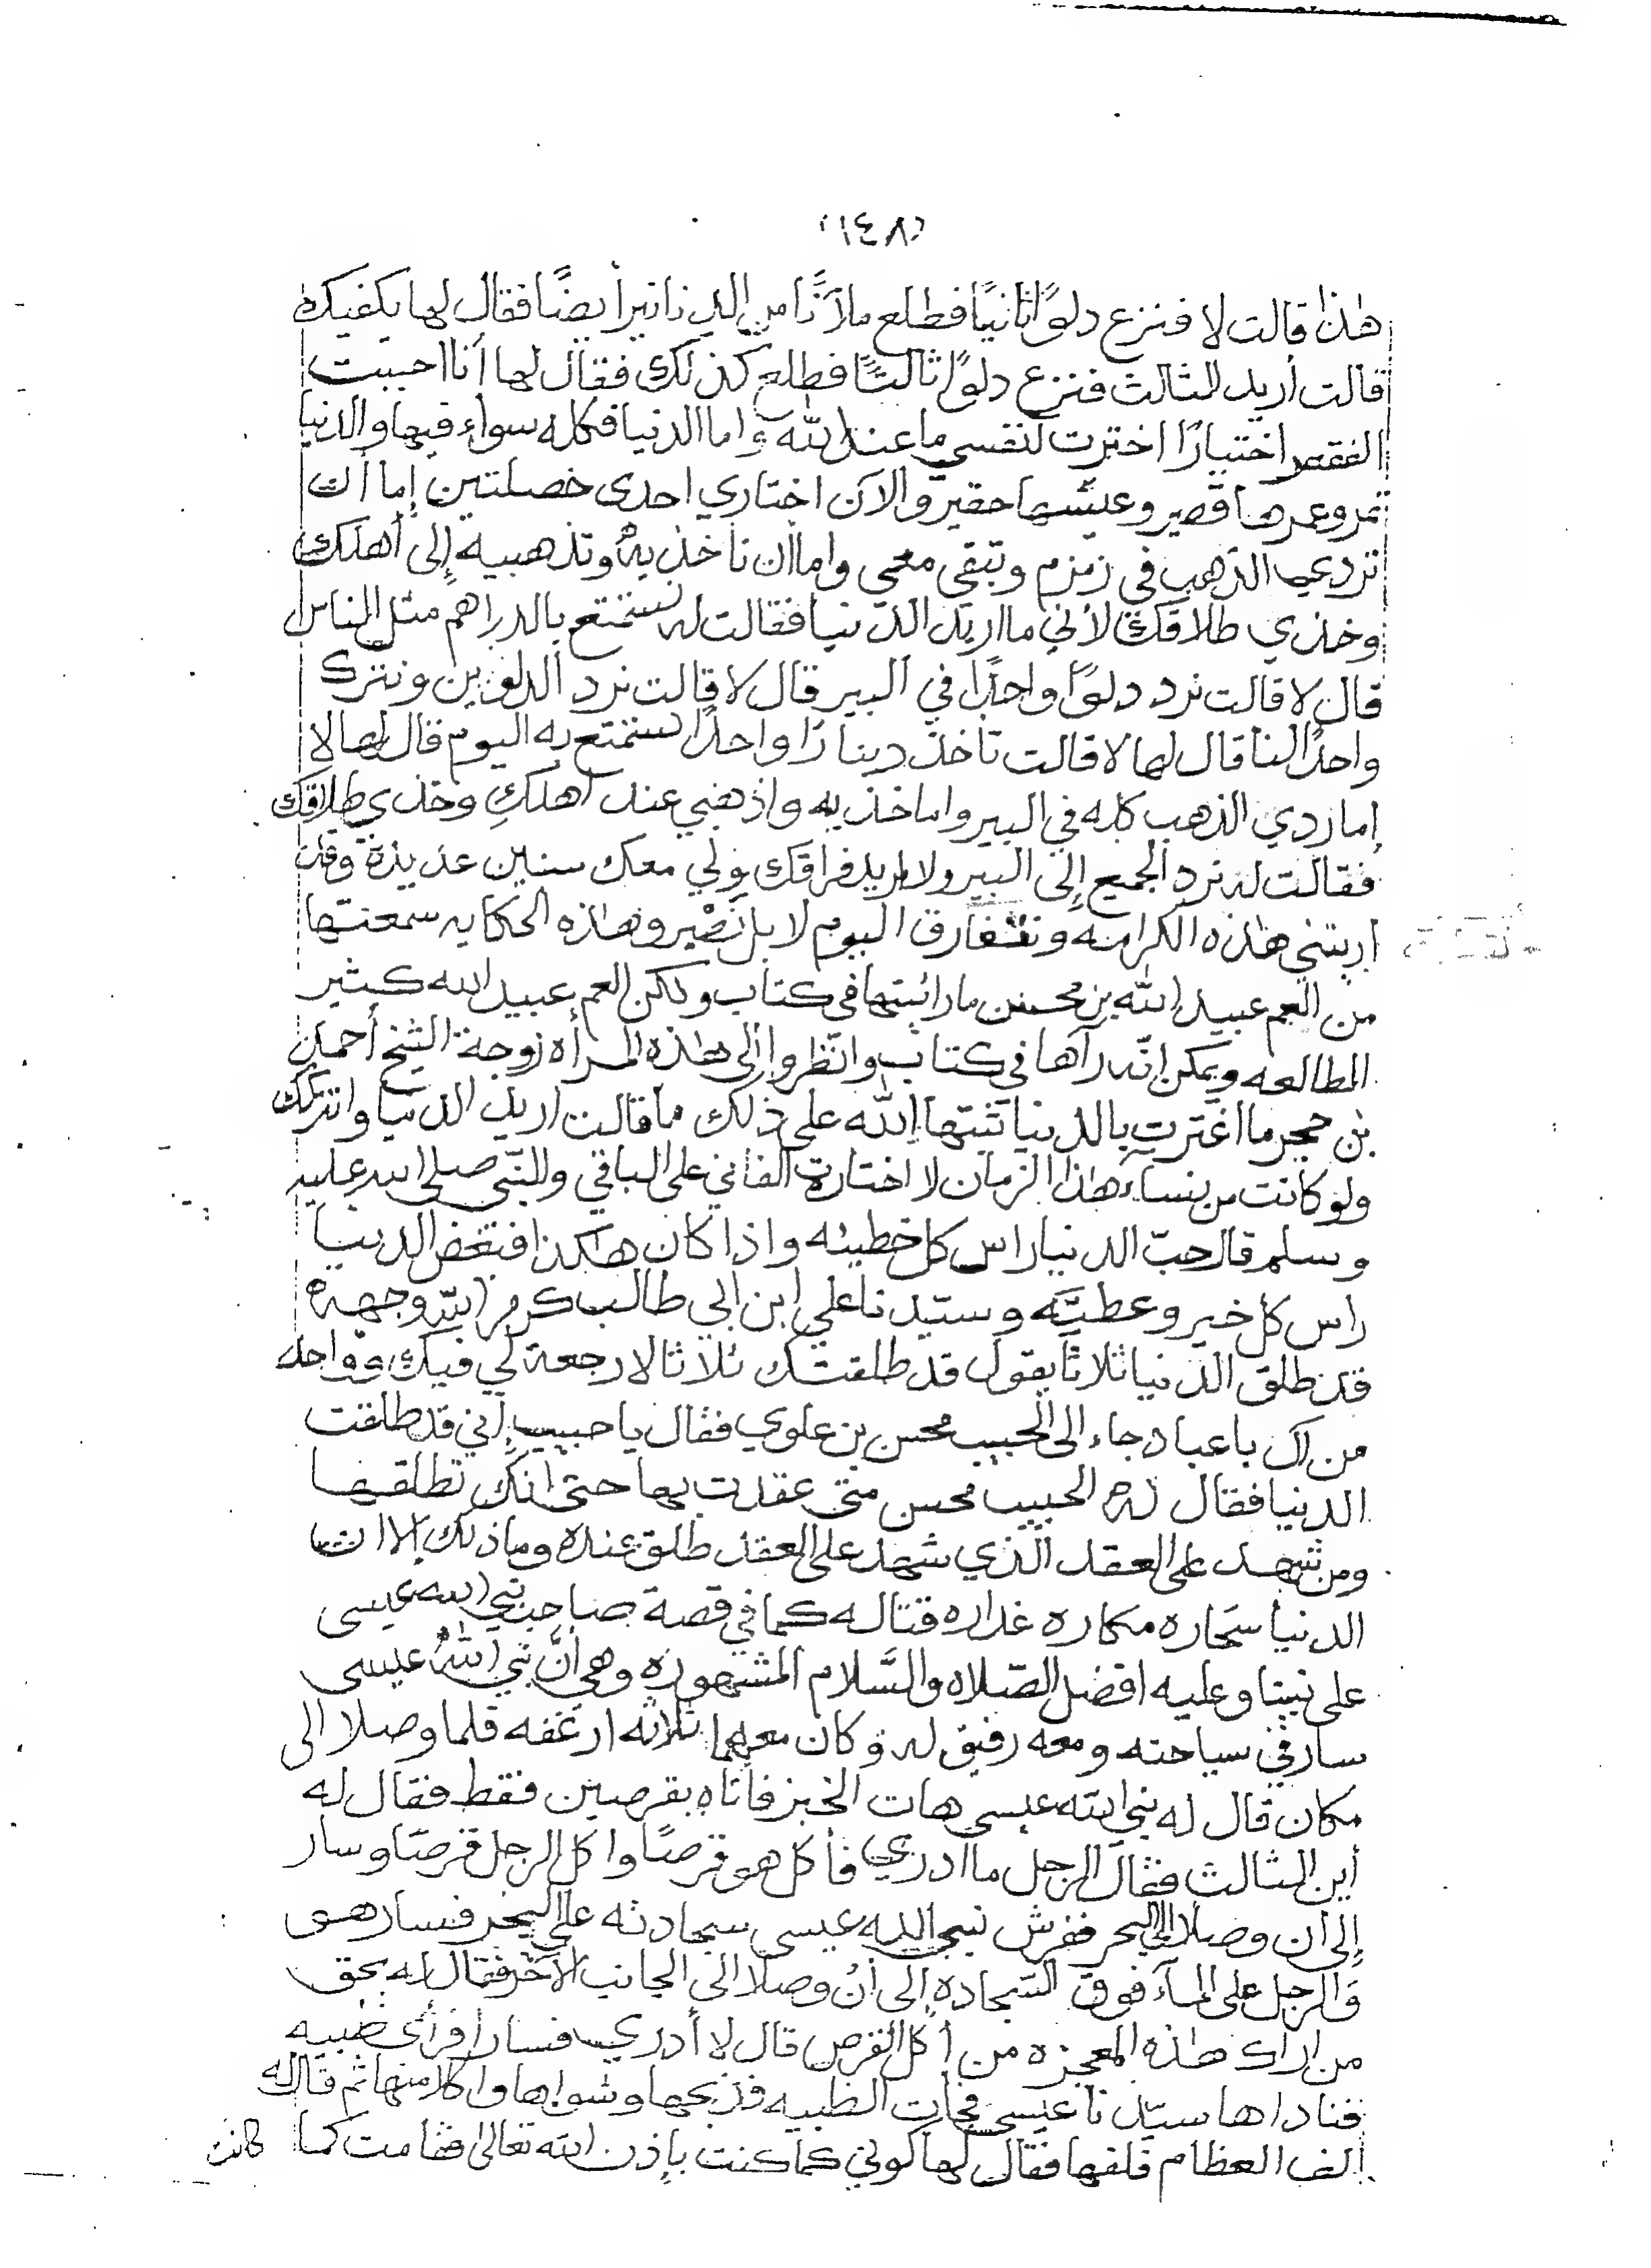 (١٤٨)
هذا قالت لا فنزع دلوًا ثانيًا فطلع ملآنًا من الدنانير أيضًا فقال لها يكفيك
قالت أريد الثالث فنزع دلوًا ثالثًا فطلع كذلك فقال لها أنا احببت
الفقر اختيارًا اخترت لنفسي ما عند الله واما الدنيا فكله سواء فيها والدنيا
تمر وعمرها قصير وعيشها حقير والآن اختاري احدى خصلتين إما أن
تردي الذهب في زمزم وتبقي معي واما ان تاخذيه وتذهبيه إلى أهلك
وخذي طلاقك لأني ما اريد الدنيا فقالت له نستمتع بالدراهم مثل الناس
قال لا قالت نرد دلوًا واحدًا في البير قال لا قالت نرد الدلوين ونترك
واحدًا لنا قال لها لا قالت ناخذ دينارًا واحدًا نستمتع به اليوم قال لها لا
إما ردي الذهب كله في البير واما خذيه واذهبي عند أهلكِ وخذي طلاقك
فقالت له نرد الجميع إلى البير ولا اريد فراقك ولي معك سنين عديدة وقد
اريتني هذه الكرامه ونتفارق اليوم لا بل نصْبر وهذه الحكايه سمعتها
من العم عبيد الله بن محسن ما رائيتها في كتاب ولكن العم عبيد الله كثير
المطالعه ويمكن انّه رآها في كتاب وانظروا إلى هذه المرأه زوجة الشيخ أحمد
بن حجر ما اغترت بالدنيا ثبتها الله على ذلك ما قالت اريد الدنيا واتركك
ولو كانت من نساء هذا الزمان لا اختارت الفاني على الباقي والنبي صلى الله عليه
وسلم قال حبّ الدنيا راس كل خطيئه واذا كان هكذا فبغض الدنيا
راس كل خير وعطيّه وسيّدنا علي ابن ابي طالب كرم الله وجهه
قد طلق الدنيا ثلاثًا يقول قد طلقتك ثلاثا لا رجعة لي فيك وواحد
من آل باعباد جاء الى الحبيب محسن بن علوي فقال يا حبيب إني قد طلقت
الدنيا فقال له الحبيب محسن متى عقدت بها حتى انك تطلقها
ومن شهد على العقد الّذي شهد على العقد طلق عنده وما ذلك الا ان
الدنيا سحّاره مكاره غداره قتاله كما في قصة صاحب نبي الله عيسى
على نبينا وعليه افضل الصّلاه والسَّلام المشهوره وهي انَّ نبي الله عيسى
سار في سياحته ومعه رفيق له وكان معهما ثلاثه ارغفه فلما وصلا الى
مكان قال له نبي الله عيسى هات الخبز فأتاه بقرصين فقط فقال له
أين الثالث فقال الرجل ما ادري فأكل هو قرصًا واكل الرجل قرصًا وسار
إلى ان وصلا إلى البحر ففرش نبي الله عيسى سجادته على البحر فسار هو
وَالرجل على المآء فوق السّجاده إلى أنْ وصلا الى الجانب الآخر فقال له بحق
من اراك هذه المعجزه من أكل القرص قال لا أدري فسارا فرأى ظبيه
فناداها سيّدنا عيسى فجأت الظبيه فذبحها وشواها واكلا منها ثم قال له
الف العظام فلفها فقال لها كوني كما كنت بإذن الله تعالى فقامت كما كانت